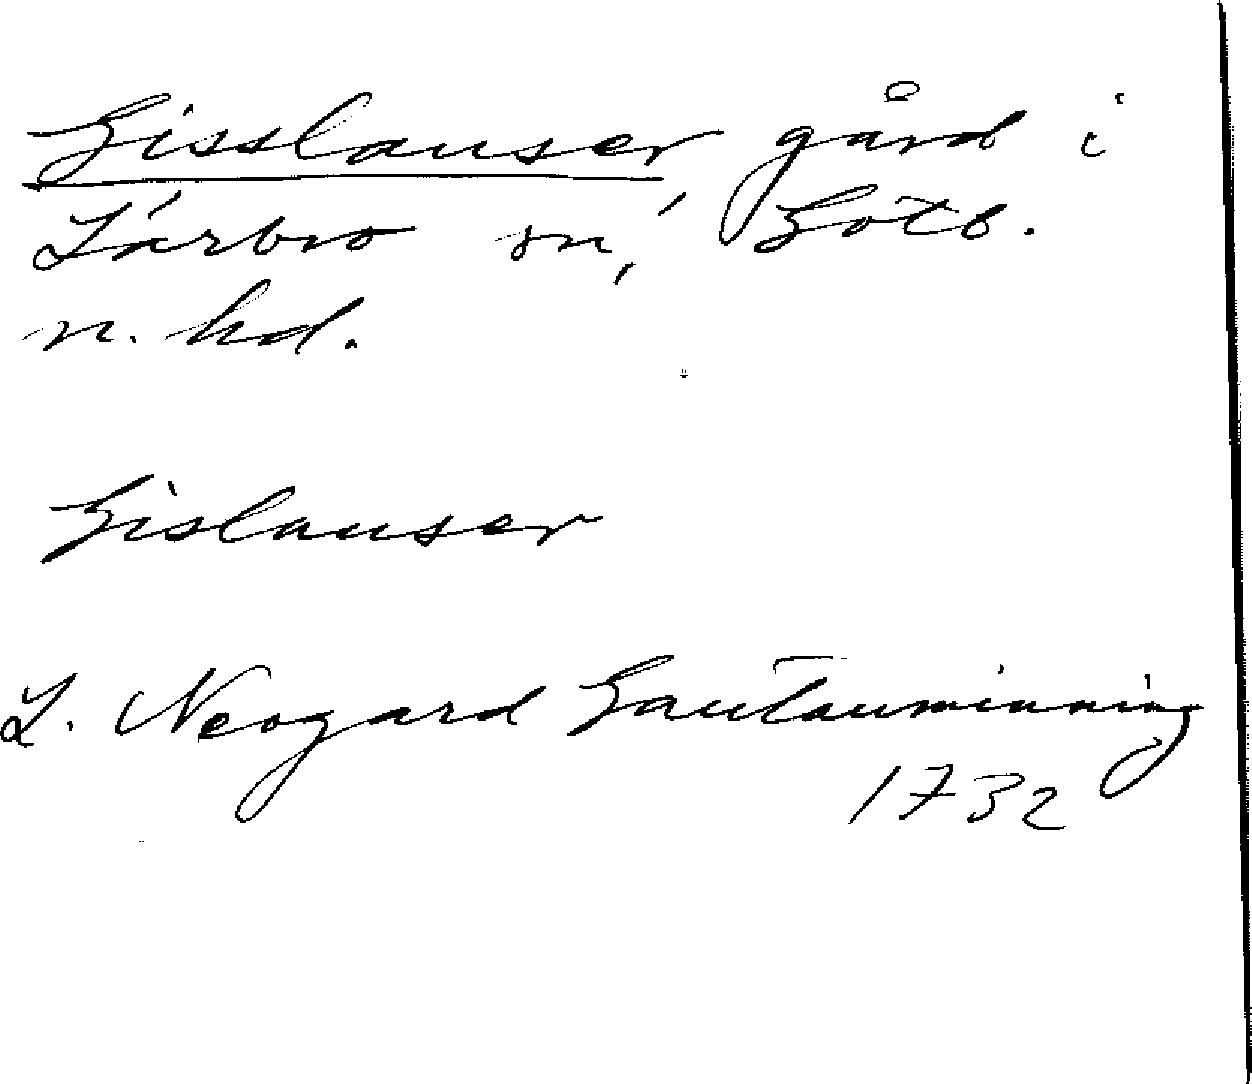 Gisslauser, gård i
Lärbro sn, Gotl.
n. hd.
Gislauser
L. Neogard Gautauminning
1732